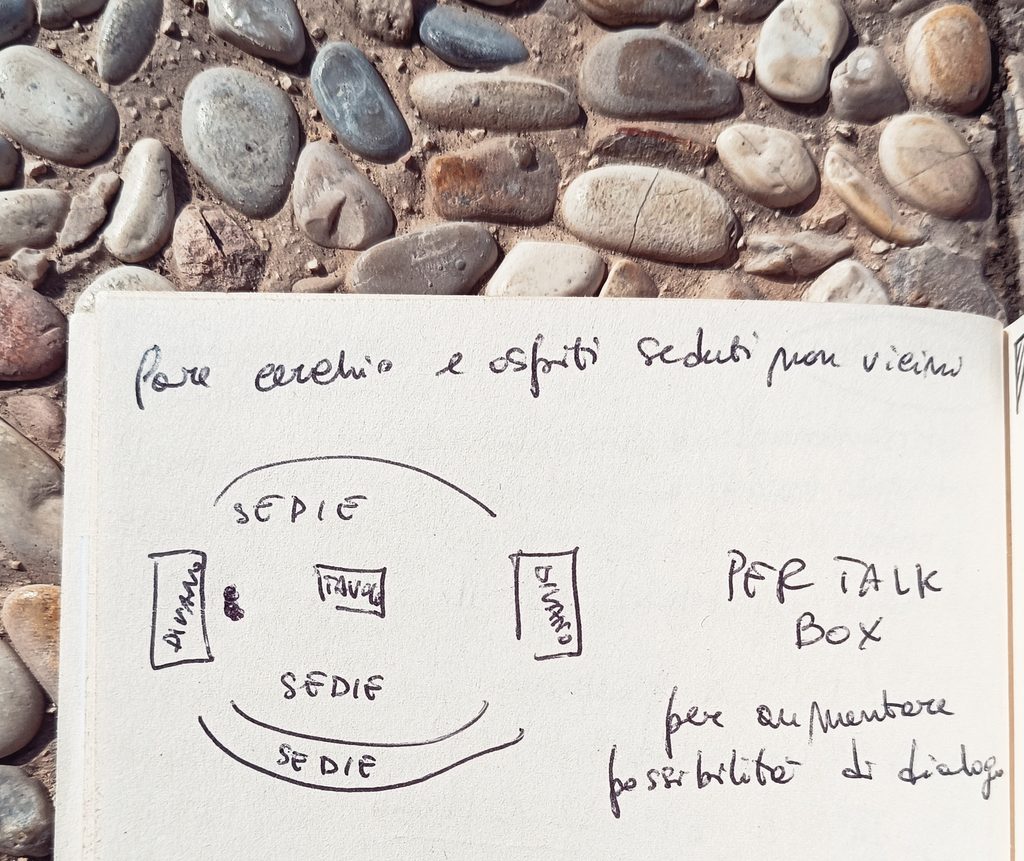 Fare cerchio e ospiti seduti non vicini
SEDIE
DIVANO
TAVOLO
DIVANO
PER TALK
BOX
SEDIE
SEDIE
per aumentare
possibilità di dialogo